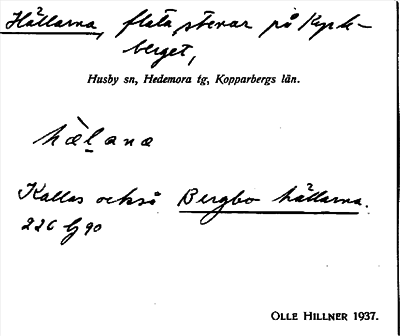 Hällarna, flata stenar på Kyrk-
berget,
Husby sn, Hedemora tg, Kopparbergs län.
hæ̀lana
Kallas också Bergbo hällarna.
226 G 90
OLLE HILLNER 1937.